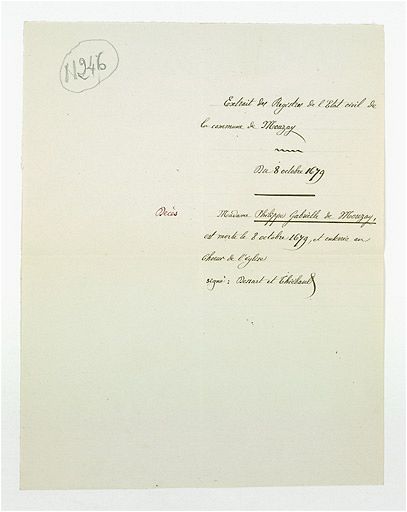 11246
Extrait des Registres de l'Etat civil de
la commune de Mouzay
Du 8 octobre 1679
Décès
Madame Philippe Gabrielle de Mouzay,
est morte le 8 octobre 1679, et enterrée au
Choeur de l'église
signé: et Thiébault